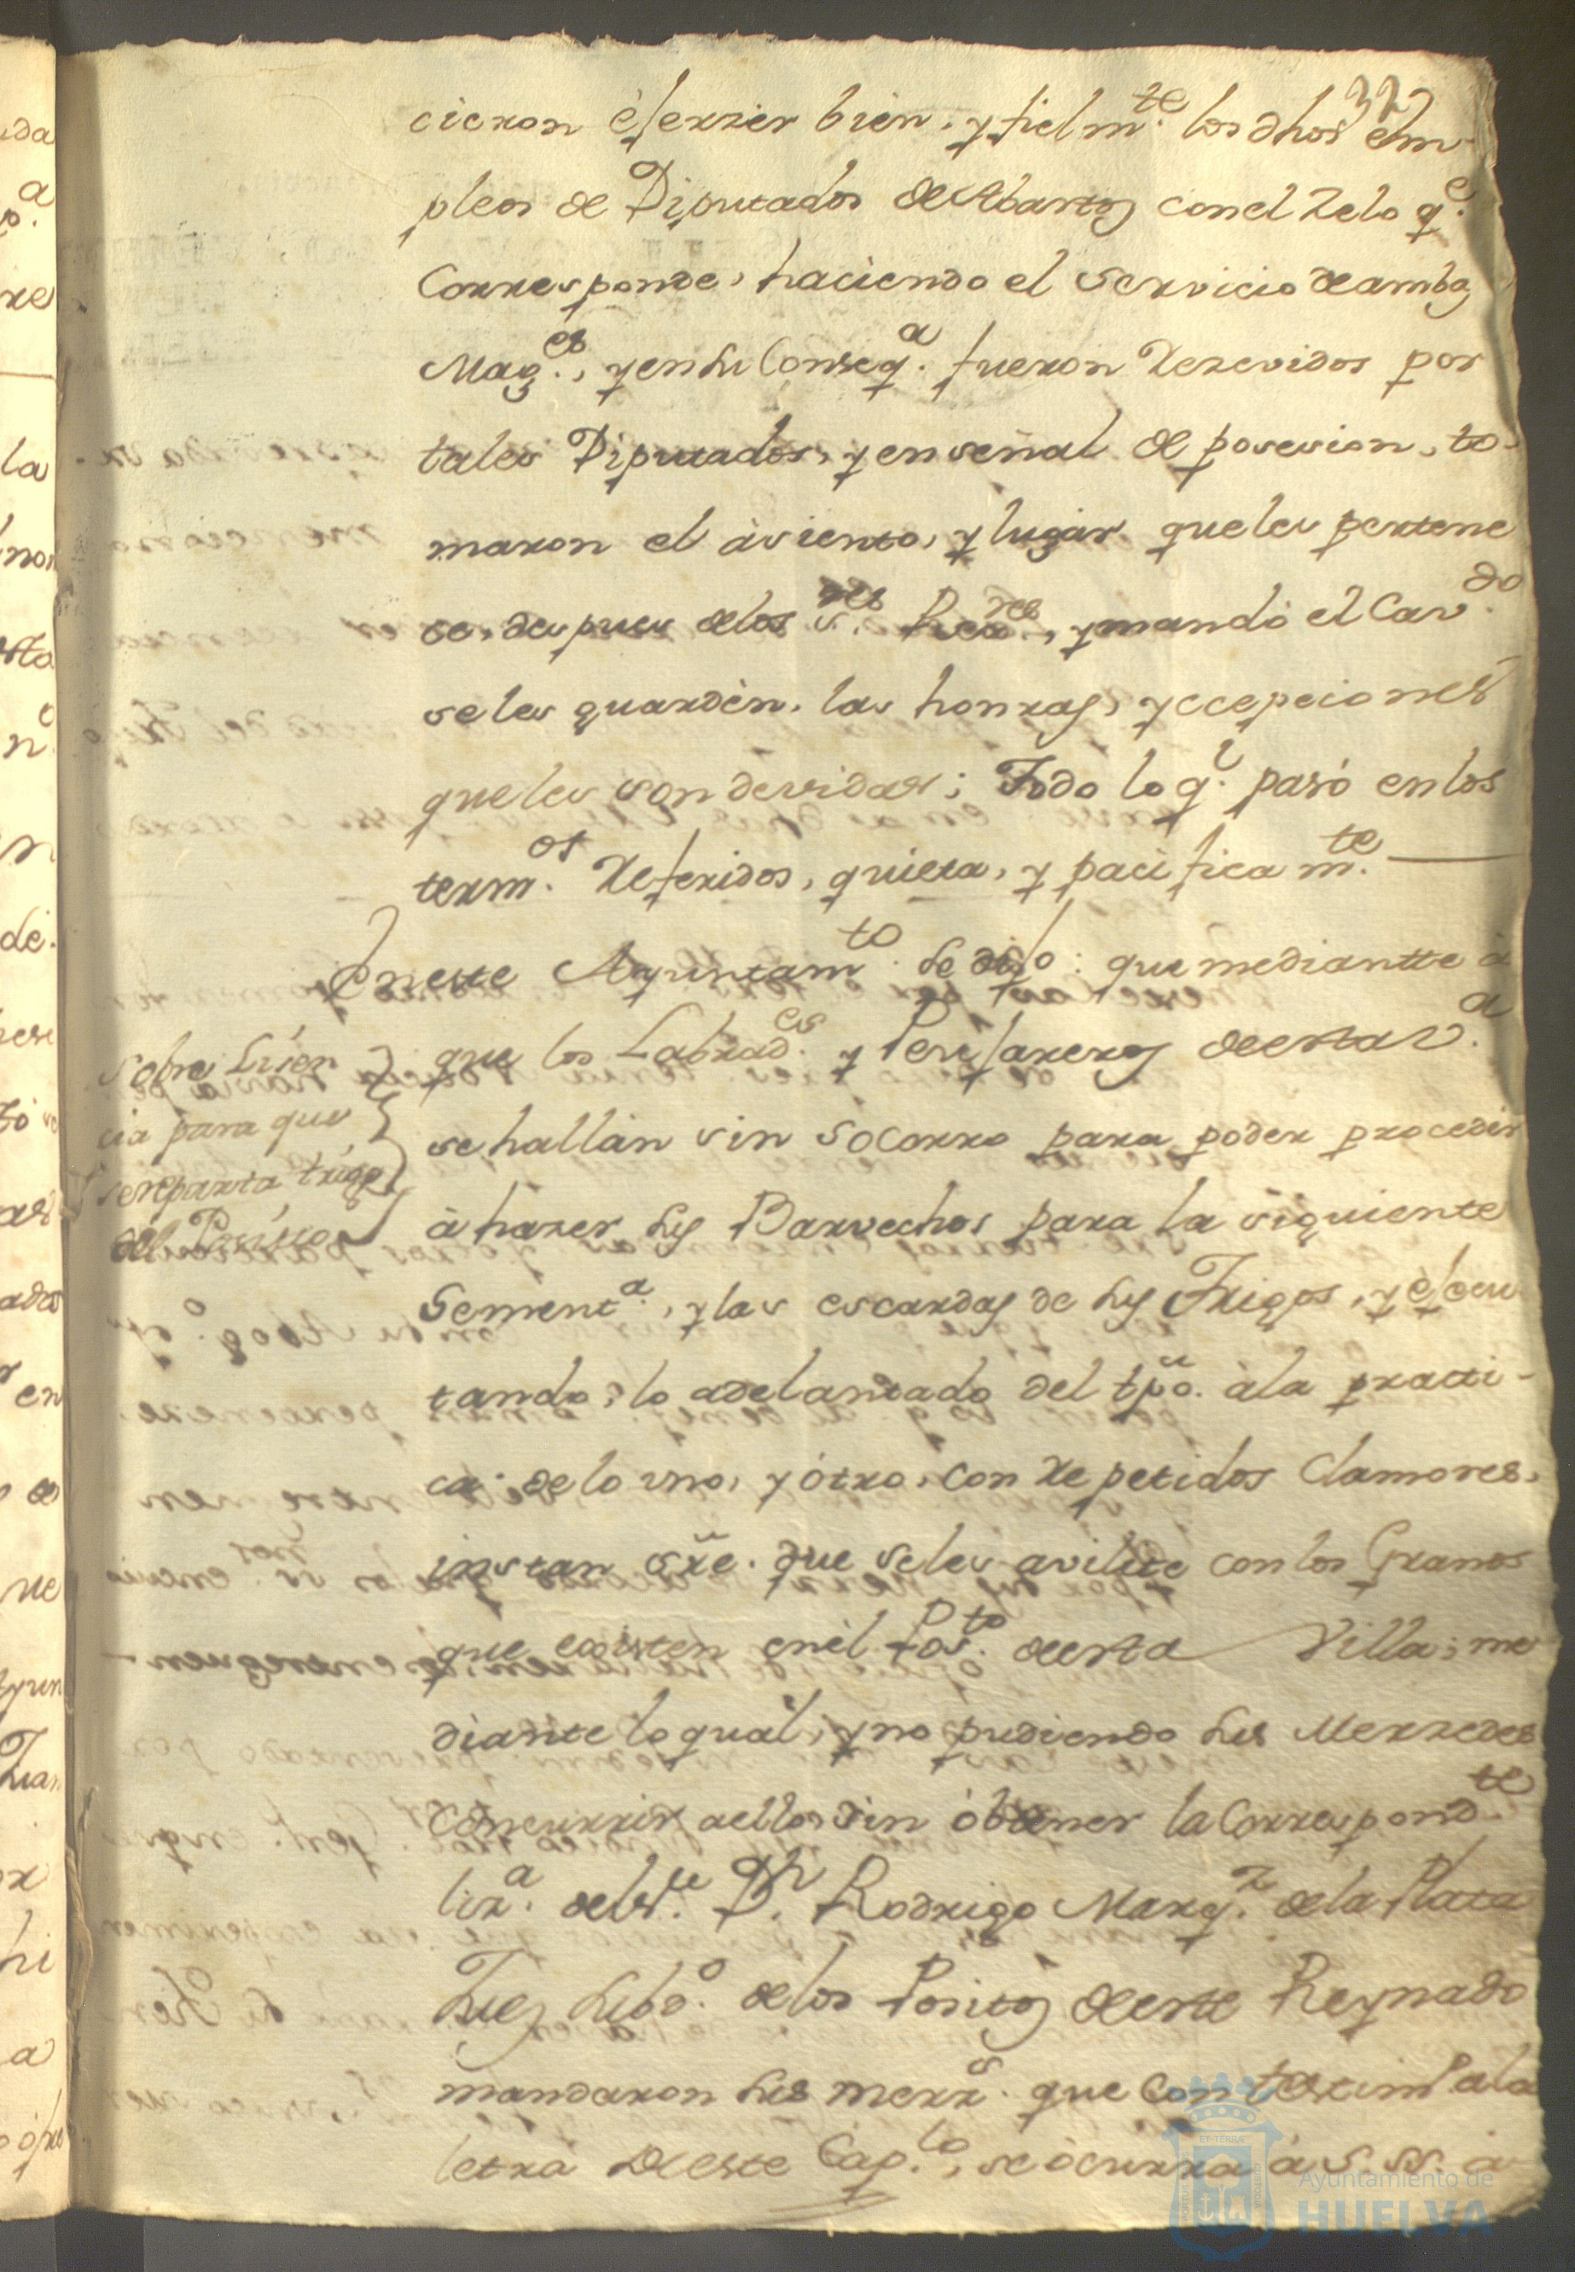 327
cieron éjerzer bien, y fielm.te los dhos em-
pleos de Diputados de Abastos con el Zelo q.e
Corresponde, haciendo el Servicio de ambas
Mag.es, y en su Conseq.a fueron Rezevidos por
tales Diputados, y en señal de posesion, to-
maron el àsiento, y lugàr que les pertene
ce, despues de los S.res Rex.res, y mandó el Cav.do
se les guardèn las honras, y ecepciones
que les son devidas; Todo lo q.e pasó en los
term.os Referidos, quieta, y pacificam.te
En este Ayuntam.to Se dijo: que mediantte à
que los Labrad.es y Peujareros de esta V.a
se hallàn sin Socorro para poder procedir
à hazer sus Barvechos para la siguiente
Sement.a, y las escardas de sus Trigos, y ejecu
tando, lo adelantado del tpõ. à la practi-
ca de lo uno, y ótro, con Repetidos Clamores,
instan sr̃e. que se les avilite con los Granos
que existen en èl Pos.to de esta Villa; me
diante lo qual, y no pudiendo sus Merzedes
concurrir a ello, sin óbtener la Correspond.te
liz.a del S.r D.n Rodrigo Marq.z de la Plata
Juez Subd.o de los Positos de este Reynado
mandaron sus merz.s que con testim.o a la
letra de este Cap.lo, se òcurra à S. SS. à
Sobre Lisen
cia para que
se reparta trigo
del Posito
Ayuntamiento de
HUELVA